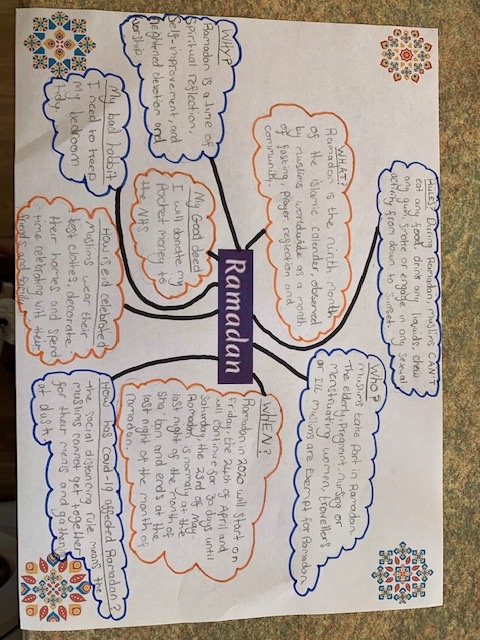 RULES During Ramadan, muslims CAN'T
eat any food, drink any liquids, chew
any gum, smoke or engage in any sexual
activity from dawn to sunset.
Who?
Muslims take part in Ramadan.
The elderly, Pregnant, nursing or
menstruating women, travellers
or Ill muslims are exempt for Ramadan
WHAT?
Ramadan is the ninth month
of the islamic calender, observed
by muslims worldwide as a month
of fasting, prayer, reflection and
community.
Ramadan
WHEN?
Ramadan in 2020 will start on
Friday, the 24th of April and
will continue for 30 days until
Saturday, the 23rd of May.
Ramadan is normaly at the
last night of the month of
sha'ban and ends at the
last night of the month of
ramadan.
WHY?
Ramadan is a time of
Spiritual reflection,
Self-improvement, and
heightened devotion and
worship
My Good deed
I will donate my
Pocket money to
the NHS
My bad habbit
I need to keep
My bedroom
tidy
How is eid celebrated
Muslims wear their
best clothes, decorate
their homes and spend
time celebrating with their
friends and family
How has covid-19 affected Ramadan?
the social distancing rule means the
muslims cannot get together
for their meals and gather
at dusk.